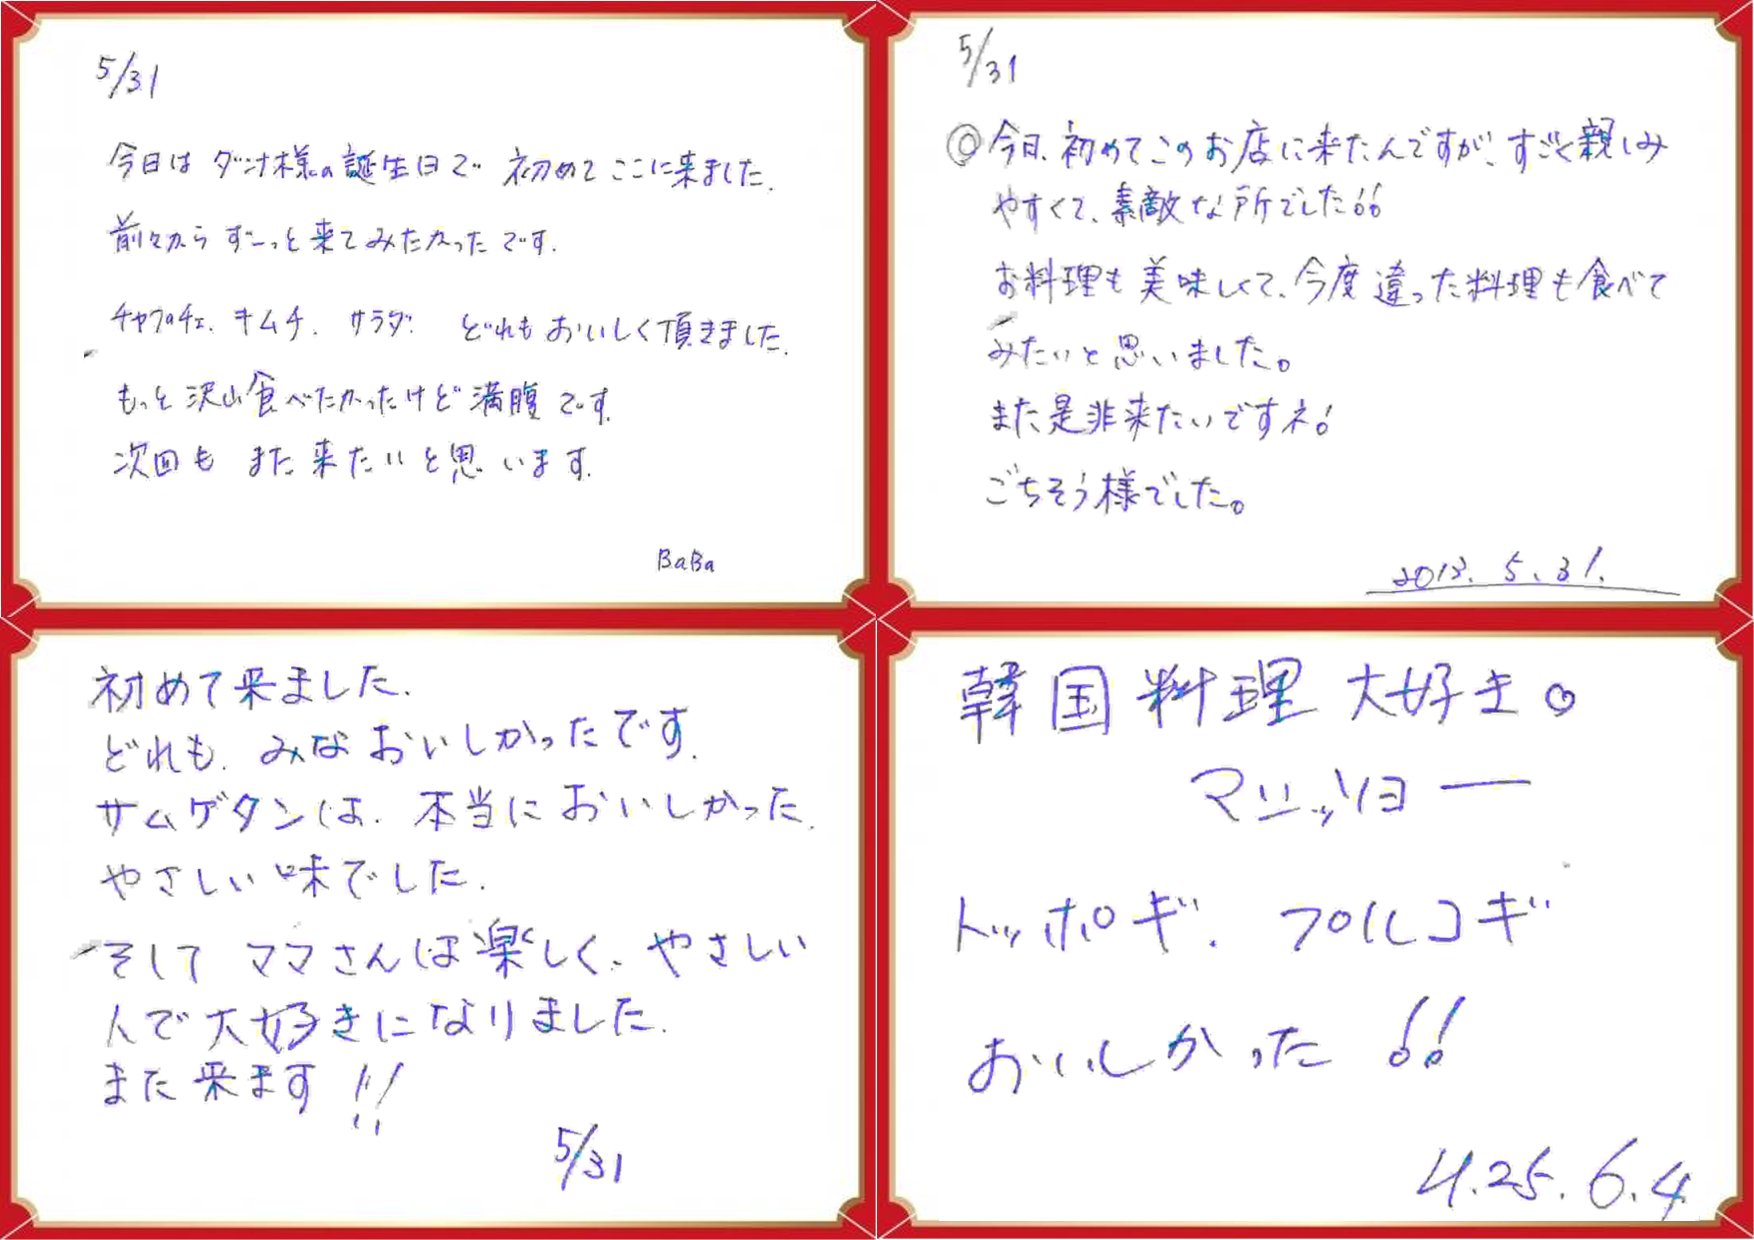 5/31
今日はダンナ様の誕生日で 初めてここに来ました.
前々からずーっと来てみたかったです.
チャプチェ. キムチ. サラダ. どれもおいしく頂きました.
もっと沢山食べたかったけど満腹です.
次回も また来たいと思います.
BaBa
5/31
◎今日、初めてこのお店に来たんですが、すごく親しみ
やすくて、素敵な所でした!!
お料理も美味しくて、今度違った料理も食べて
みたいと思いました。
また是非来たいですネ!
ごちそう様でした。
2013. 5. 31.
初めて来ました.
どれも. みなおいしかったです.
サムゲタンは. 本当においしかった.
やさしい味でした.
そして ママさんは楽しく、やさしい
人で大好きになりました.
また来ます!!
5/31
韓国料理大好き。
マシッソヨー
トッポギ. プルコギ
おいしかった!!
H.25.6.4